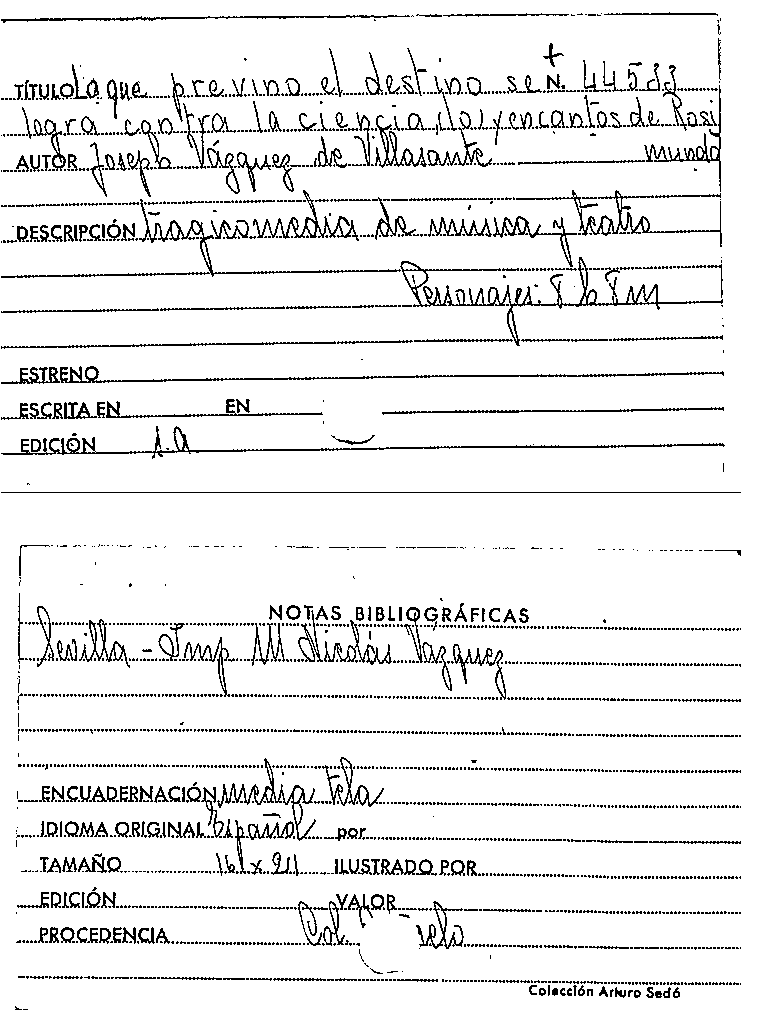 TÍTULO La que previno el destino se N. 44533
logra contra la ciencia, lo/yencantos de Rosi
AUTOR Joseph Vázquez de Villasante mundo
DESCRIPCIÓN tragicomedia de música y teatro
Personajes: 8 h 8 m
ESTRENO
ESCRITA EN EN
EDICIÓN s.a
NOTAS BIBLIOGRÁFICAS
Sevilla - Imp M Nicolás Vázquez
ENCUADERNACIÓN media tela
IDIOMA ORIGINAL Español por
TAMAÑO ILUSTRADO POR
EDICIÓN VALOR
PROCEDENCIA Col.
Colección Arturo Sedó